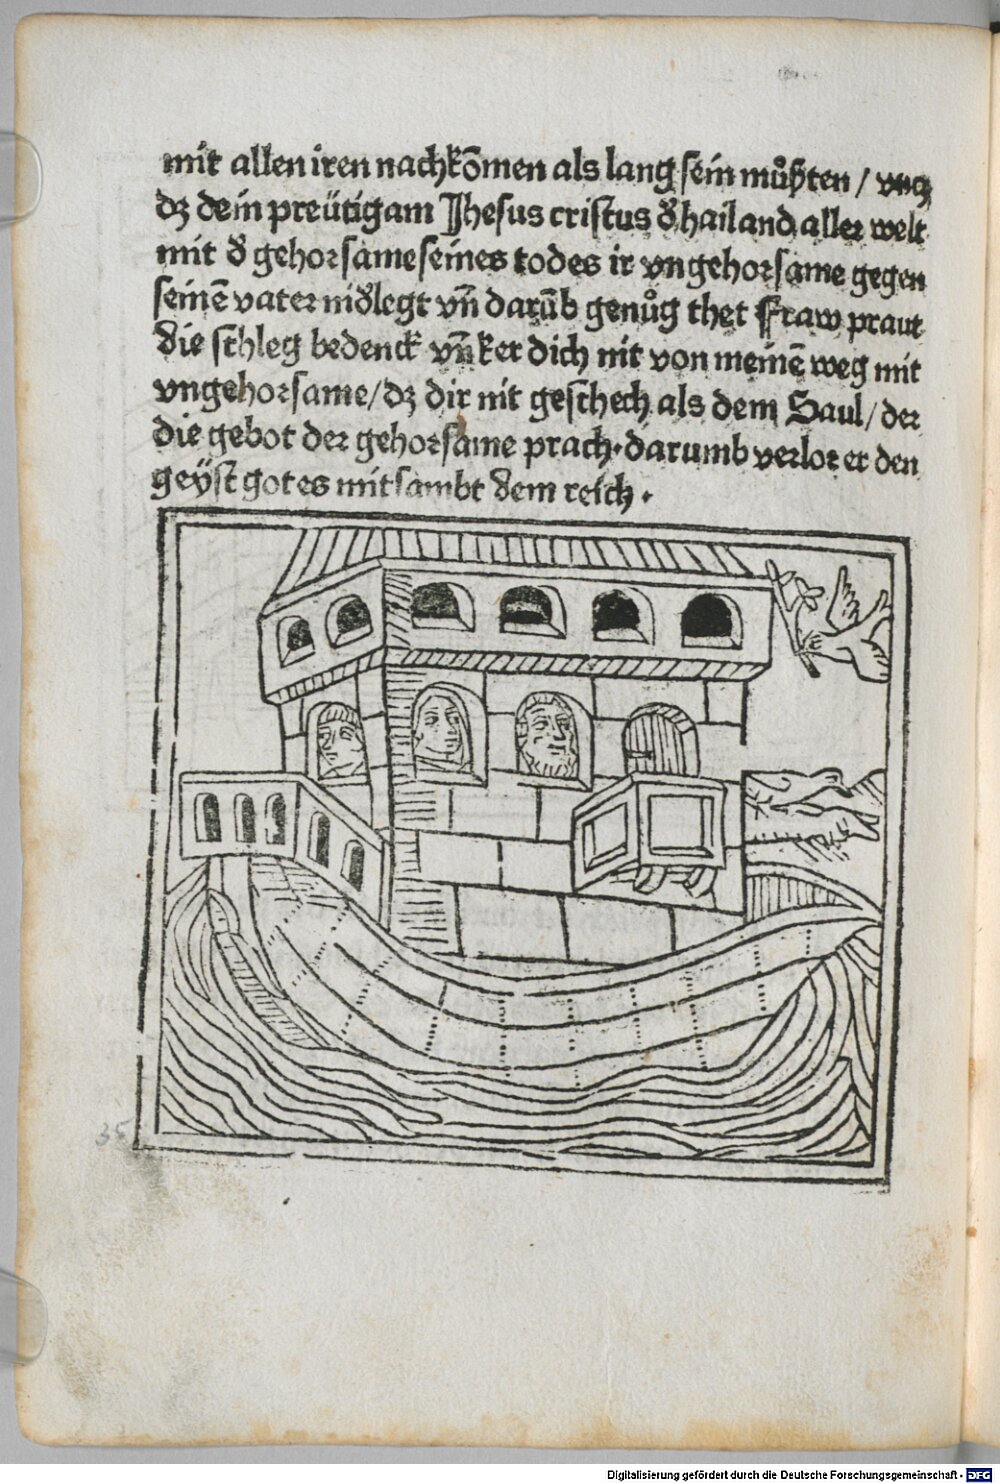 mit allen iren nachkōmen als lang sein můsten / vncz
dz dein preütigam Jhesus cristus đ hailand aller welt
mit đ gehorsame seines todes ir vngehorsame gegen
seinē vater niđlegt vn̄ darūb genůg thet Fraw praut
die schleg bedenck vn̄ ker dich nit von meinē weg mit
vngehorsame / dz dir nit geschech als dem Saul / der
die gebot der gehorsame prach · darumb verlor er den
geÿst gotes mitsambt dem reich ·
35
Digitalisierung gefördert durch die Deutsche Forschungsgemeinschaft - DFG